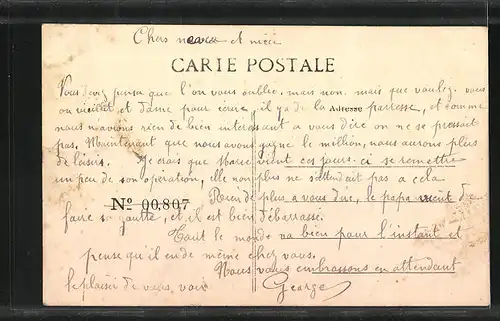 Chers neveux et nièce
CARTE POSTALE
Vous devez penser que l'on vous oublie, mais non. mais que voulez-vous
on vieillit et dame pour écrire, il y a de la Adresse paresse, et comme
nous n'avions rien de bien intéressant a vous dire on ne se pressait
pas. Maintenant que nous avons gagné le million, nous aurons plus
de loisirs. Je crois que vient ces jours-ci se remettre
un peu de son opération, elle non plus ne s'attendait pas a cela
No 00,807
Rien de plus a vous dire, le papa vient de
faire sa goutte, et il est bien débarrassé.
Tout le monde va bien pour l'instant et
pense qu'il en de même chez vous.
Nous vous embrassons en attendant
le plaisir de vous voir
George